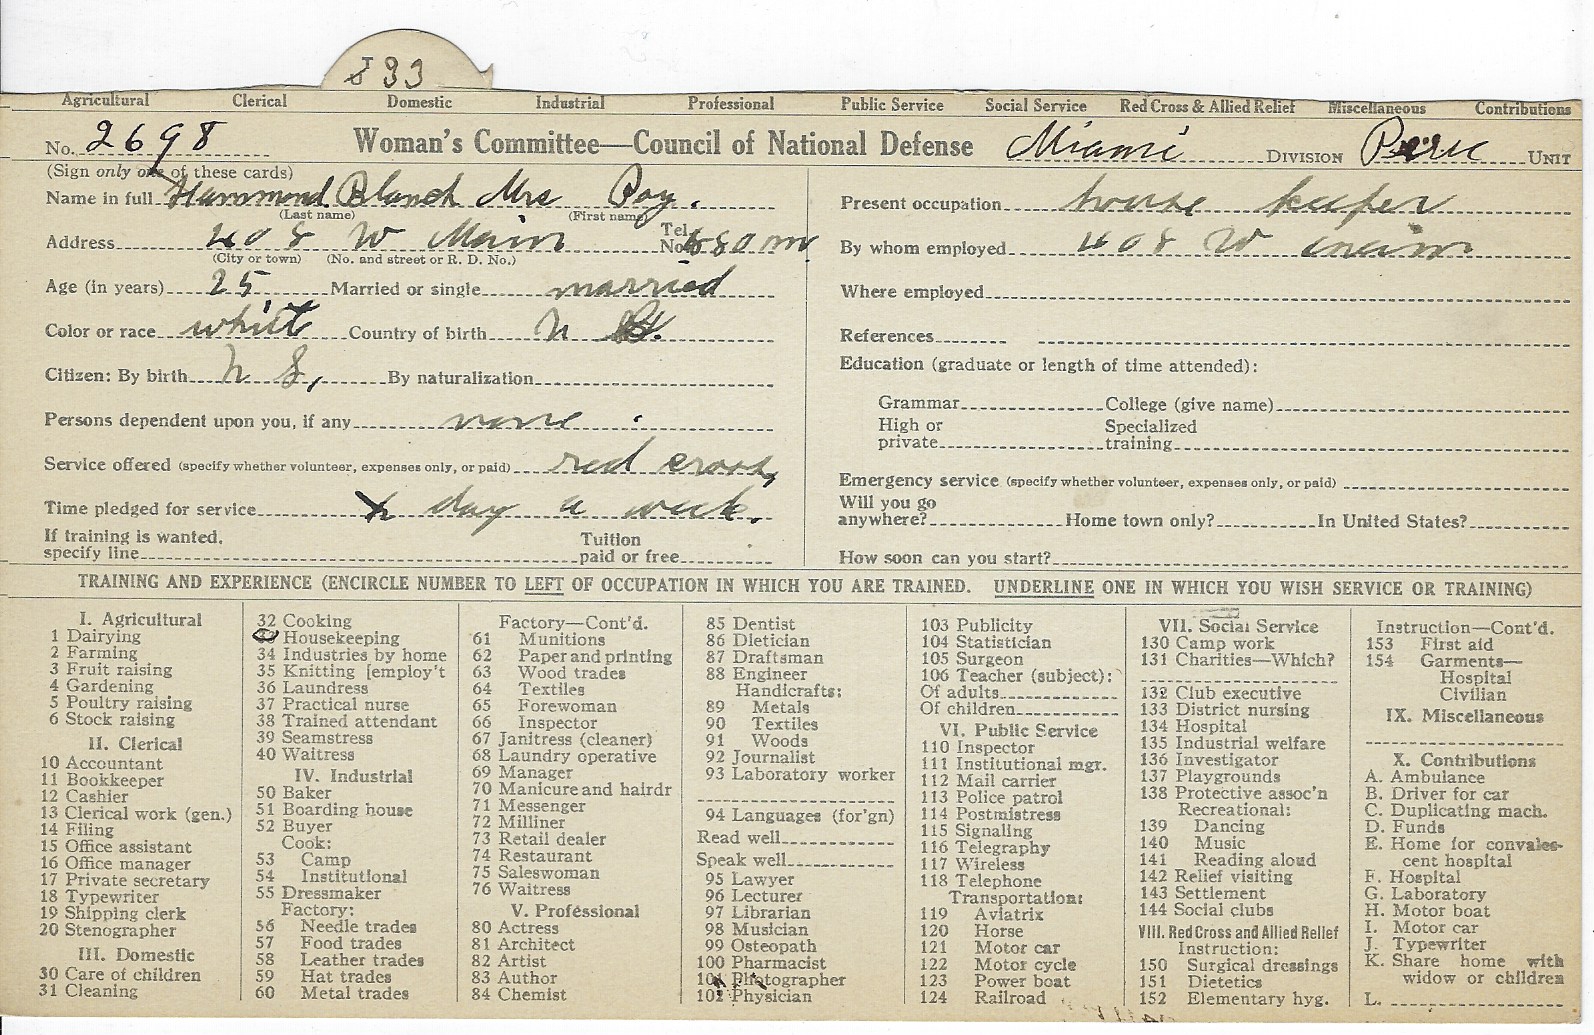 33
Agricultural Clerical Domestic Industrial Professional Public Service Social Service Red Cross & Allied Relief Miscellaneous Contributions
No. 2698 Woman's Committee—Council of National Defense Miami DIVISION Peru UNIT
(Sign only one of these cards)
Name in full Hammond Blanch Mrs Roy.
(Last name) (First name)
Address 408 W Main Tel. No. 680 m
(City or town) (No. and street or R. D. No.)
Age (in years) 25 Married or single married
Color or race white Country of birth U S.
Citizen: By birth U S, By naturalization
Persons dependent upon you, if any none.
Service offered (specify whether volunteer, expenses only, or paid) red cross,
Time pledged for service day a week.
If training is wanted, specify line Tuition paid or free
Present occupation house keeper
By whom employed 408 W main
Where employed
References
Education (graduate or length of time attended):
Grammar College (give name)
High or private Specialized training
Emergency service (specify whether volunteer, expenses only, or paid)
Will you go anywhere? Home town only? In United States?
How soon can you start?
TRAINING AND EXPERIENCE (ENCIRCLE NUMBER TO LEFT OF OCCUPATION IN WHICH YOU ARE TRAINED. UNDERLINE ONE IN WHICH YOU WISH SERVICE OR TRAINING)
I. Agricultural
1 Dairying
2 Farming
3 Fruit raising
4 Gardening
5 Poultry raising
6 Stock raising
II. Clerical
10 Accountant
11 Bookkeeper
12 Cashier
13 Clerical work (gen.)
14 Filing
15 Office assistant
16 Office manager
17 Private secretary
18 Typewriter
19 Shipping clerk
20 Stenographer
III. Domestic
30 Care of children
31 Cleaning
32 Cooking
33 Housekeeping
34 Industries by home
35 Knitting [employ't
36 Laundress
37 Practical nurse
38 Trained attendant
39 Seamstress
40 Waitress
IV. Industrial
50 Baker
51 Boarding house
52 Buyer
Cook:
53 Camp
54 Institutional
55 Dressmaker
Factory:
56 Needle trades
57 Food trades
58 Leather trades
59 Hat trades
60 Metal trades
Factory—Cont'd.
61 Munitions
62 Paper and printing
63 Wood trades
64 Textiles
65 Forewoman
66 Inspector
67 Janitress (cleaner)
68 Laundry operative
69 Manager
70 Manicure and hairdr
71 Messenger
72 Milliner
73 Retail dealer
74 Restaurant
75 Saleswoman
76 Waitress
V. Professional
80 Actress
81 Architect
82 Artist
83 Author
84 Chemist
85 Dentist
86 Dietician
87 Draftsman
88 Engineer
Handicrafts:
89 Metals
90 Textiles
91 Woods
92 Journalist
93 Laboratory worker
94 Languages (for'gn)
Read well
Speak well
95 Lawyer
96 Lecturer
97 Librarian
98 Musician
99 Osteopath
100 Pharmacist
101 Photographer
102 Physician
103 Publicity
104 Statistician
105 Surgeon
106 Teacher (subject):
Of adults
Of children
VI. Public Service
110 Inspector
111 Institutional mgr.
112 Mail carrier
113 Police patrol
114 Postmistress
115 Signaling
116 Telegraphy
117 Wireless
118 Telephone
Transportation:
119 Aviatrix
120 Horse
121 Motor car
122 Motor cycle
123 Power boat
124 Railroad
VII. Social Service
130 Camp work
131 Charities—Which?
132 Club executive
133 District nursing
134 Hospital
135 Industrial welfare
136 Investigator
137 Playgrounds
138 Protective assoc'n
Recreational:
139 Dancing
140 Music
141 Reading aloud
142 Relief visiting
143 Settlement
144 Social clubs
VIII. Red Cross and Allied Relief
Instruction:
150 Surgical dressings
151 Dietetics
152 Elementary hyg.
Instruction—Cont'd.
153 First aid
154 Garments—
Hospital
Civilian
IX. Miscellaneous
X. Contributions
A. Ambulance
B. Driver for car
C. Duplicating mach.
D. Funds
E. Home for convales-
cent hospital
F. Hospital
G. Laboratory
H. Motor boat
I. Motor car
J. Typewriter
K. Share home with
widow or children
L.